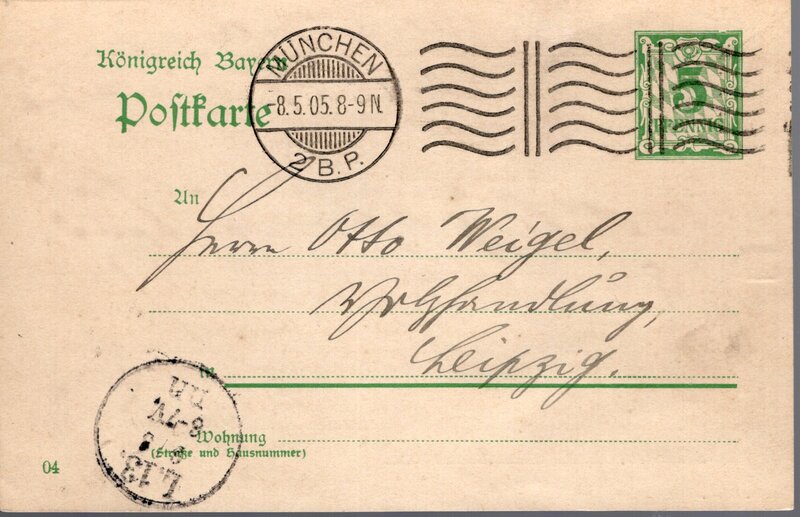 Königreich Bayern
Postkarte
MÜNCHEN
-8.5.05.8-9N.
2 B.P.
5
PFENNIG
An
Herrn Otto Weigel,
Leipzig.
in
Wohnung
(Straße und Hausnummer)
L.13.
8-7V
04